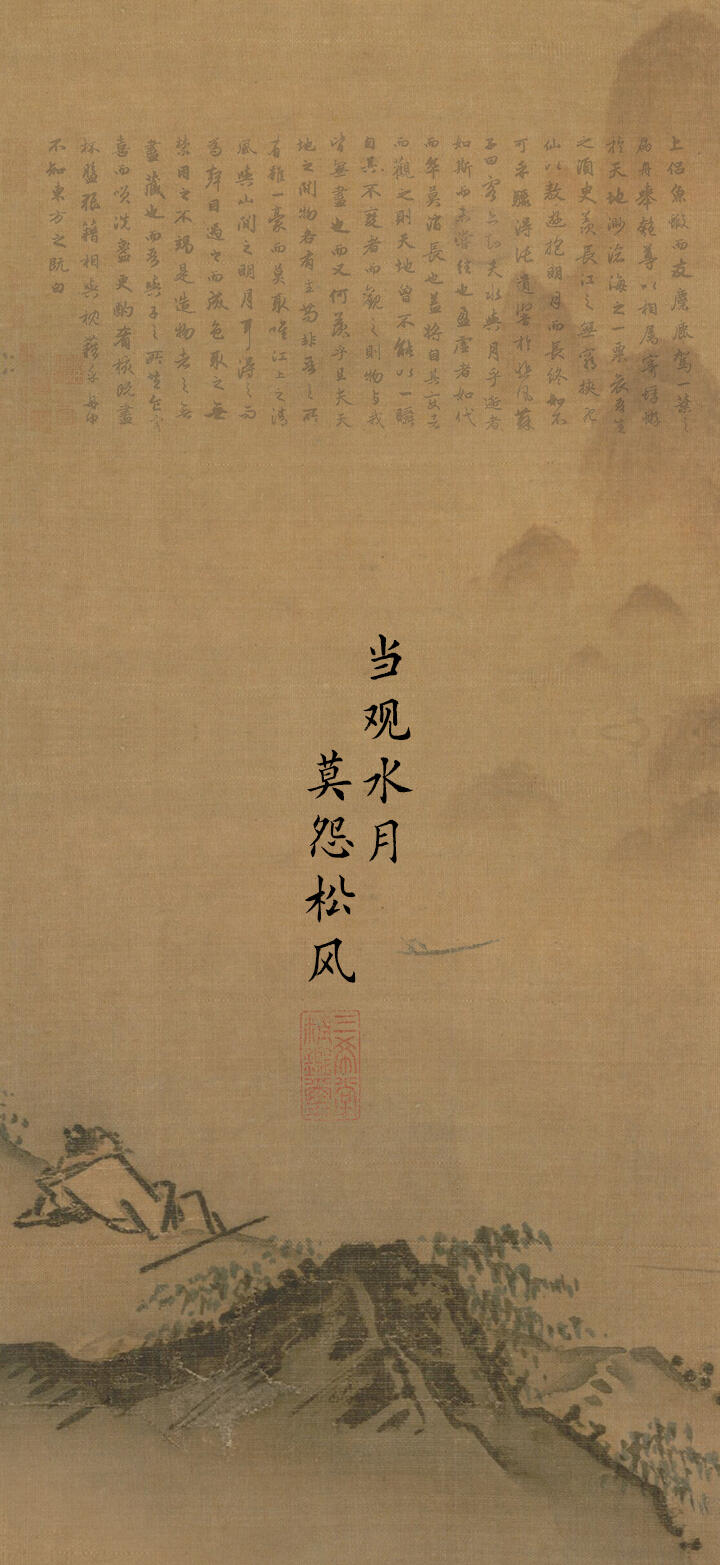 上侣魚蝦而友麋鹿駕一葉之
扁舟舉匏尊以相属寄蜉蝣
於天地渺滄海之一粟哀吾生
之須臾羨長江之無窮挾飛
仙以敖遊抱明月而長終知不
可乎驟得託遺響於悲風蘇
子曰客亦知夫水與月乎逝者
如斯而未嘗往也盈虛者如代
而卒莫消長也蓋將自其變者
而觀之則天地曾不能以一瞬
自其不變者而觀之則物与我
皆無盡也而又何羨乎且夫天
地之間物各有主苟非吾之所
有雖一豪而莫取唯江上之清
風與山間之明月耳得之而
為聲目遇之而成色取之無
禁用之不竭是造物者之無
盡藏也而吾與子之所共食客
喜而笑洗盞更酌肴核既盡
杯盤狼籍相與枕藉乎舟中
不知東方之既白
当观水月
莫怨松风
三希堂
精鑑璽